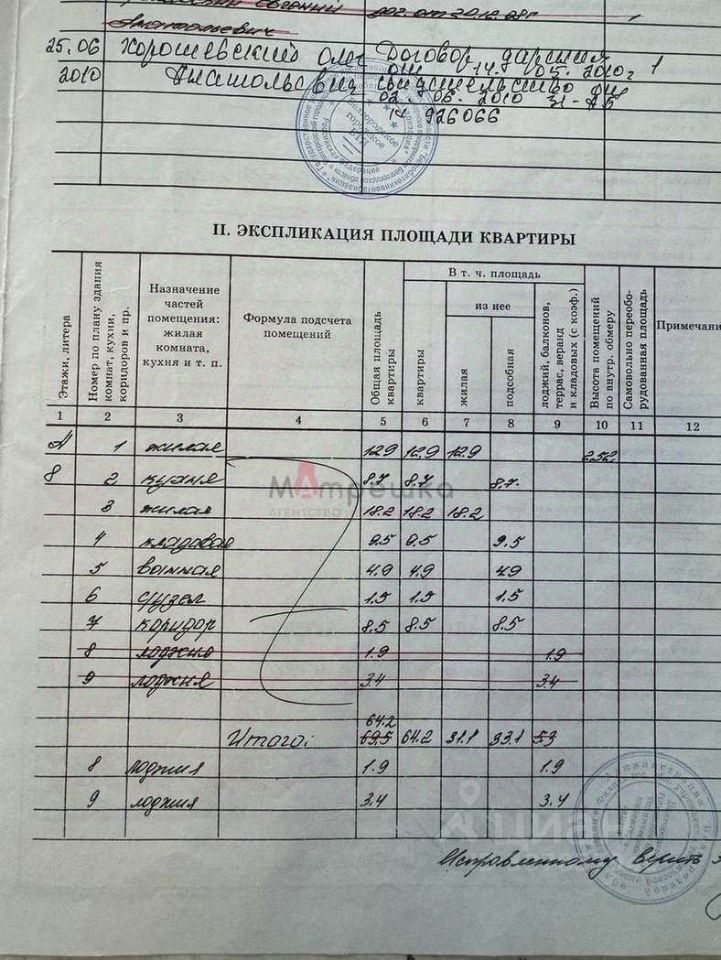 Анатольевич
25.06 Хорошевский Олег Договор дарения 1
2010 Анатольевич от 14. 05. 2010г
свидетельство
02. 06. 2010 31-
926066
II. ЭКСПЛИКАЦИЯ ПЛОЩАДИ КВАРТИРЫ
Этажи, литера
Номер по плану здания комнат, кухни, коридоров и пр.
Назначение частей помещения: жилая комната, кухня и т. п.
Формула подсчета помещений
Общая площадь квартиры
В т. ч. площадь
квартиры
из нее
жилая
подсобная
лоджий, балконов, террас, веранд и кладовых (с коэф.)
Высота помещений по внутр. обмеру
Самовольно переоборудованная площадь
Примечани
1 2 3 4 5 6 7 8 9 10 11 12
А 1 жилая 12.9 12.9 12.9 2.52
8 2 кухня 8.7 8.7 8.7
3 жилая 18.2 18.2 18.2
4 кладовая 9.5 9.5 9.5
5 ванная 4.9 4.9 4.9
6 с/узел 1.5 1.5 1.5
7 коридор 8.5 8.5 8.5
8 лоджия 1.9 1.9
9 лоджия 3.4 3.4
64.2
Итого: 69.5 64.2 31.1 33.1 5.3
8 лоджия 1.9 1.9
9 лоджия 3.4 3.4
Исправленному верить
Матрешка
АГЕНТСТВО
ЦИАН